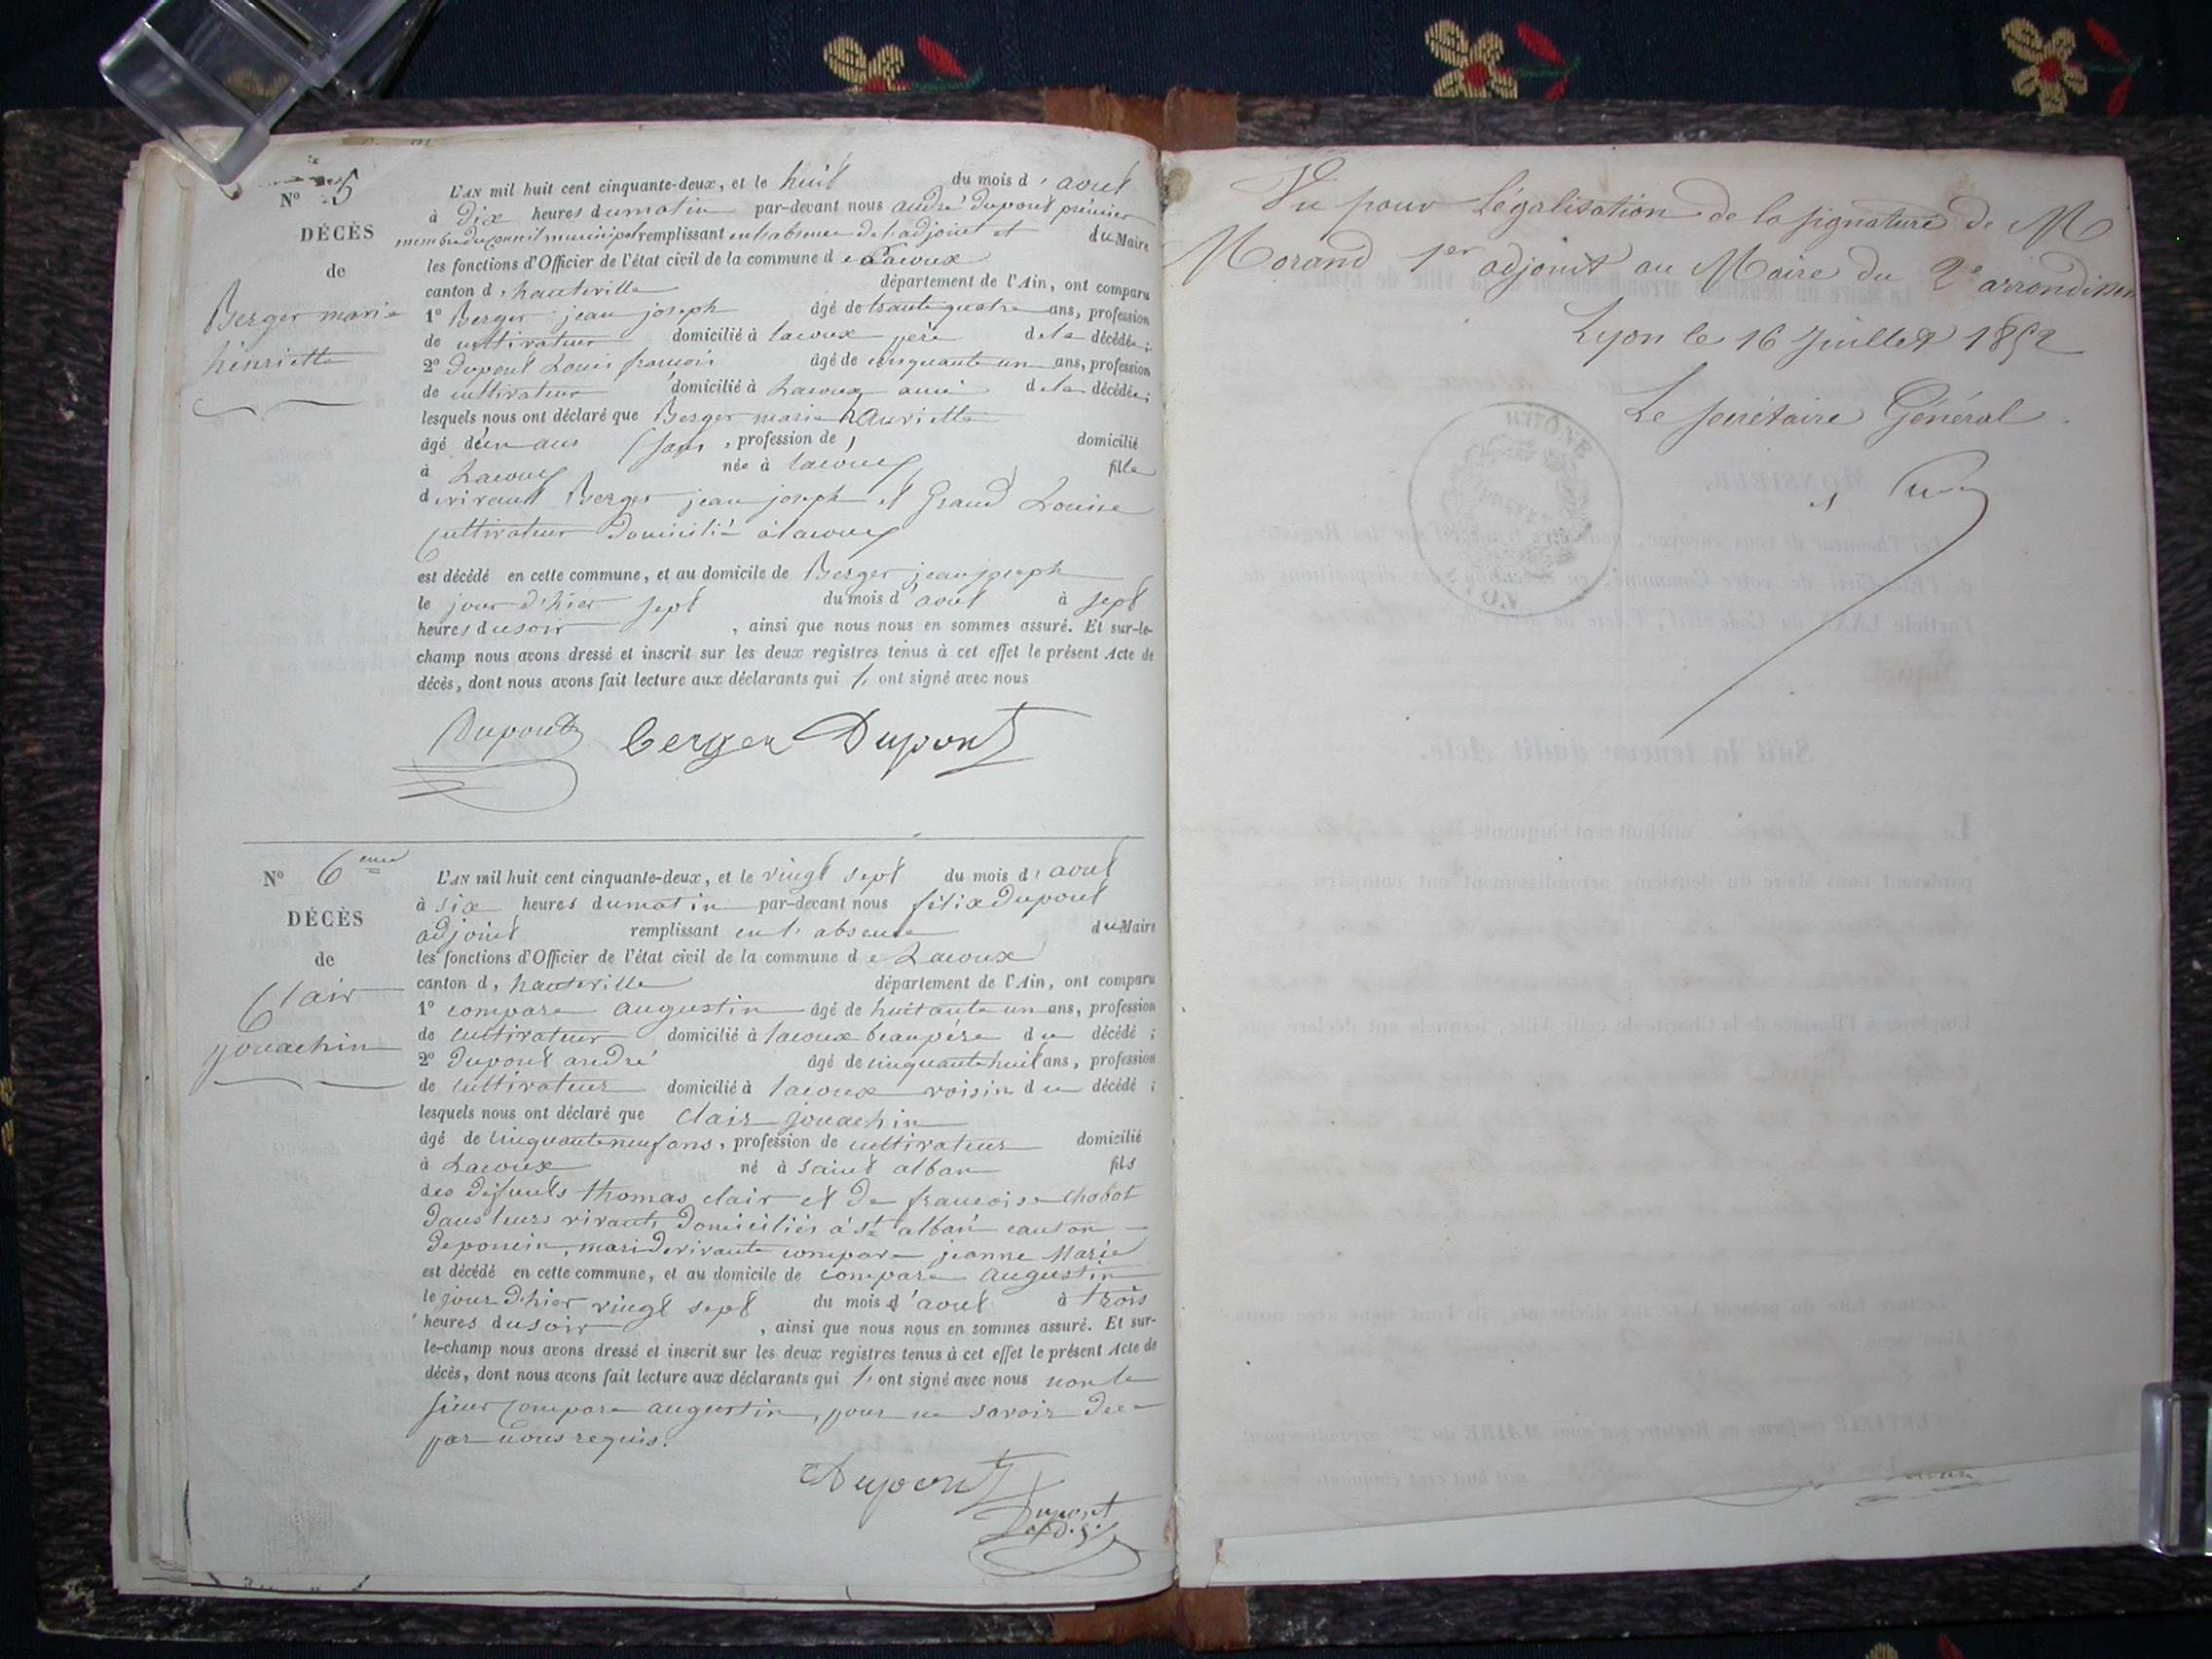 N° 5
DÉCÈS
de
Berger marie
henriette
L'AN mil huit cent cinquante-deux, et le huit du mois d'aout
à Dix heures du matin par-devant nous andré dupont prémier
membre du conseil municipal remplissant en l'absence de l'adjoint et du Maire
les fonctions d'Officier de l'état civil de la commune de Lacoux
canton d'hauteville département de l'Ain, ont comparu
1° Berger jean joseph âgé de trante quatre ans, profession
de cultivateur domicilié à lacoux père de la décédée;
2° dupont Louis francois âgé de cinquante un ans, profession
de cultivateur domicilié à Lacoux ami de la décédée;
lesquels nous ont déclaré que Berger marie hanriette
âgé d'un ans sans, profession de, domicilié
à Lacoux née à lacoux fille
de vivant Berger jean joseph et Grand Louise
cultivateur Domicilié à lacoux
est décédé en cette commune, et au domicile de Berger jean joseph
le jour d'hier sept du mois d'aout à sept
heures du soir, ainsi que nous nous en sommes assuré. Et sur-le-
champ nous avons dressé et inscrit sur les deux registres tenus à cet effet le présent Acte de
décès, dont nous avons fait lecture aux déclarants qui l'ont signé avec nous
Dupont berger Dupont
N° 6eme
DÉCÈS
de
Clair
jouachin
L'AN mil huit cent cinquante-deux, et le vingt sept du mois d'aout
à six heures du matin par-devant nous félix Dupont
adjoint remplissant en l'absence du Maire
les fonctions d'Officier de l'état civil de la commune de Lacoux
canton d'hauteville département de l'Ain, ont comparu
1° compare augustin âgé de huitante un ans, profession
de cultivateur domicilié à lacoux beaupére du décédé;
2° dupont andré âgé de cinquante huit ans, profession
de cultivateur domicilié à lacoux voisin du décédé;
lesquels nous ont déclaré que clair jouachin
âgé de cinquante neuf ans, profession de cultivateur domicilié
à Lacoux né à saint alban fils
des défunts thomas clair et de francoise chobot
dans leurs vivants Domiciliés à st alban canton
de poncin, mari de vivante compare jeanne Marie
est décédé en cette commune, et au domicile de compare augustin
le jour d'hier vingt sept du mois d'aout à trois
heures du soir, ainsi que nous nous en sommes assuré. Et sur-
le-champ nous avons dressé et inscrit sur les deux registres tenus à cet effet le présent Acte de
décès, dont nous avons fait lecture aux déclarants qui l'ont signé avec nous non le
sieur Compare augustin, pour ne savoir de ce
par nous requis.
Dupont
Dupont
adj.
Vu pour légalisation de la signature de M
Morand 1er adjoint au Maire du 2e arrondissem
Lyon le 16 Juillet 1852
Le secrétaire Général